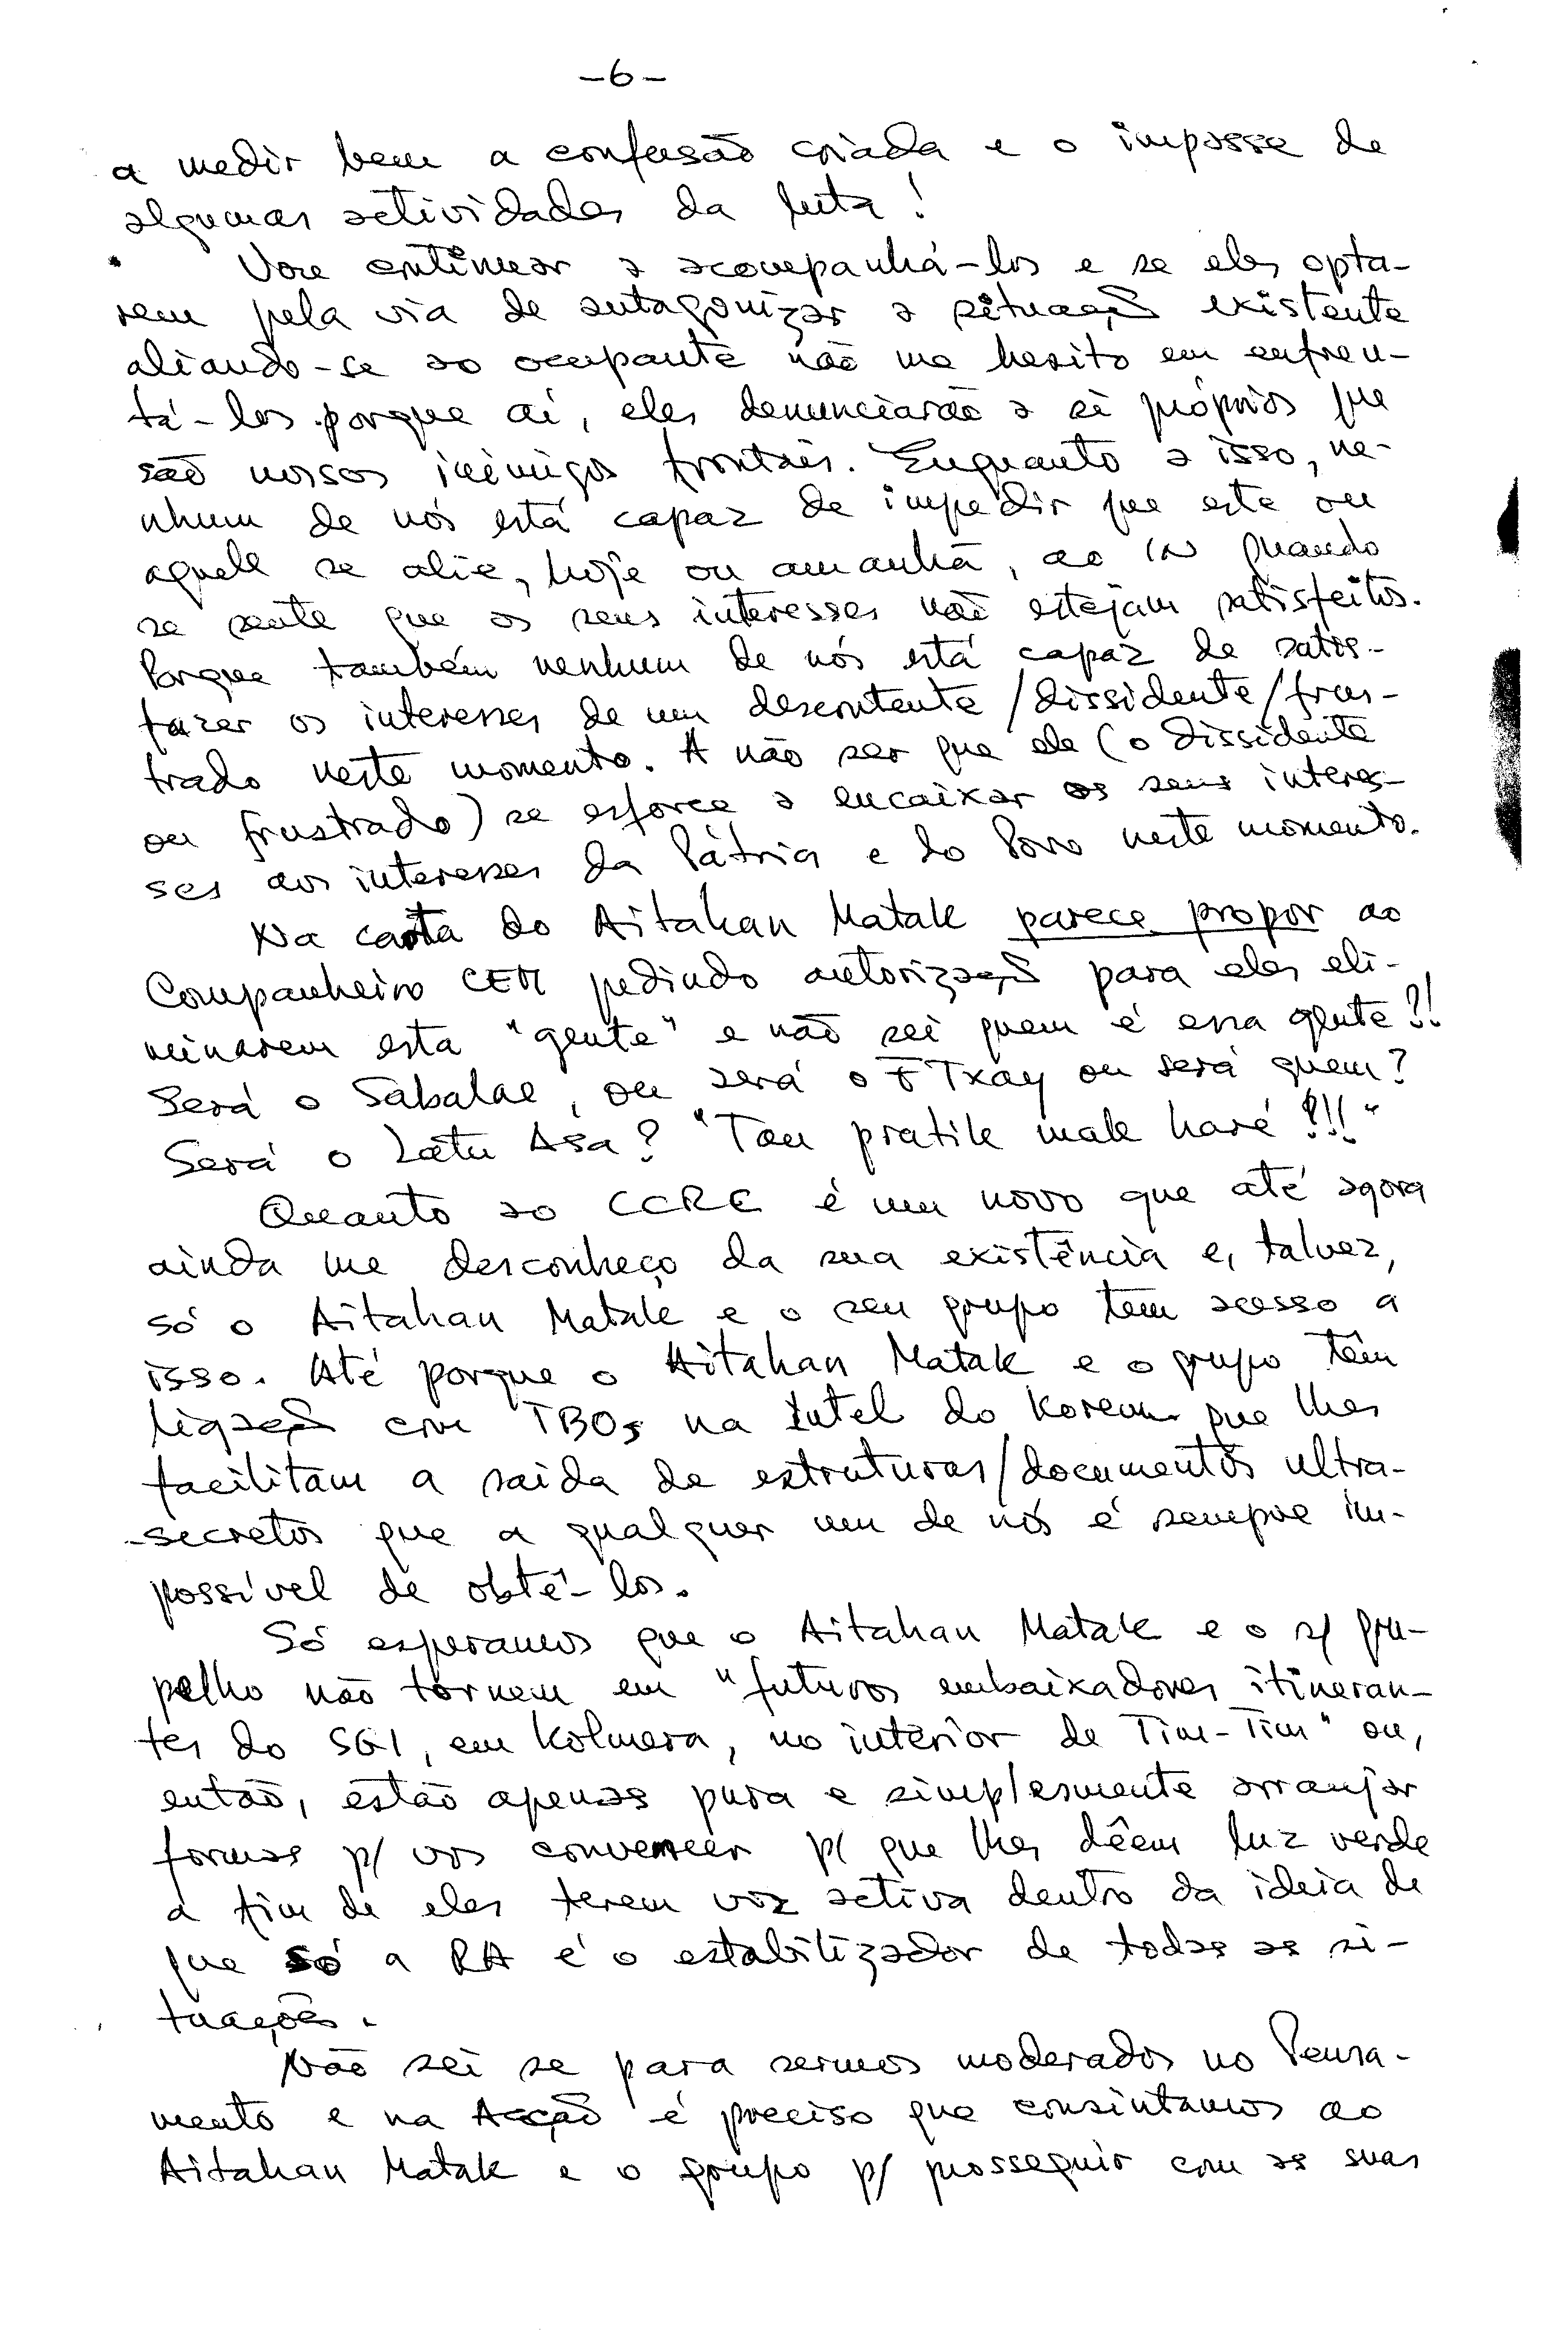 -6-
a medir bem a confusão criada e o impasse de
algumas actividades da luta!
Vou continuar a acompanhá-los e se eles opta-
rem pela via de antagonizar a situação existente
aliando-se ao ocupante não me hesito em enfren-
tá-los porque aí, eles denunciarão a si próprios que
são nossos inimigos frontais. Enquanto a isso, ne-
nhum de nós está capaz de impedir que este ou
aquele se alie, hoje ou amanhã, ao IN quando
se sente que os seus interesses não estejam satisfeitos.
Porque também nenhum de nós está capaz de satis-
fazer os interesses de um descontente/dissidente/frus-
trado neste momento. A não ser que ele (o dissidente
ou frustrado) se esforce a encaixar os seus interes-
ses aos interesses da Pátria e do Povo neste momento.
Na carta do Aitahan Matak parece propor ao
Companheiro CEM pedindo autorização para eles eli-
minarem esta "gente" e não sei quem é essa gente?!
Será o Sabalae, ou será o F Txay ou será quem?
Será o Lætu Asa? "Tau pratik mak haré?!!!"
Quanto ao CCRE é um novo que até agora
ainda me desconheço da sua existência e, talvez,
só o Aitahan Matak e o seu grupo tem acesso a
isso. Até porque o Aitahan Matak e o grupo têm
ligação com TBOs na Intel do Korem que lhes
facilitam a saida de estruturas/documentos ultra-
-secretos que a qualquer um de nós é sempre im-
possível de obtê-los.
Só esperamos que o Aitahan Matak e o s/ gru-
pelho não tornem em "futuros embaixadores itineran-
tes do SGI, em Kolmera, no interior de Tim-Tim" ou,
então, estão apenas pura e simplesmente arranjar
formas p/ vos convencer p/ que lhes dêem luz verde
a fim de eles terem voz activa dentro da ideia de
que só a RA é o estabilizador de todas as si-
tuações.
Não sei se para sermos moderados no Pensa-
mento e na Acção é preciso que consintamos ao
Aitahan Matak e o grupo p/ prosseguir com as suas